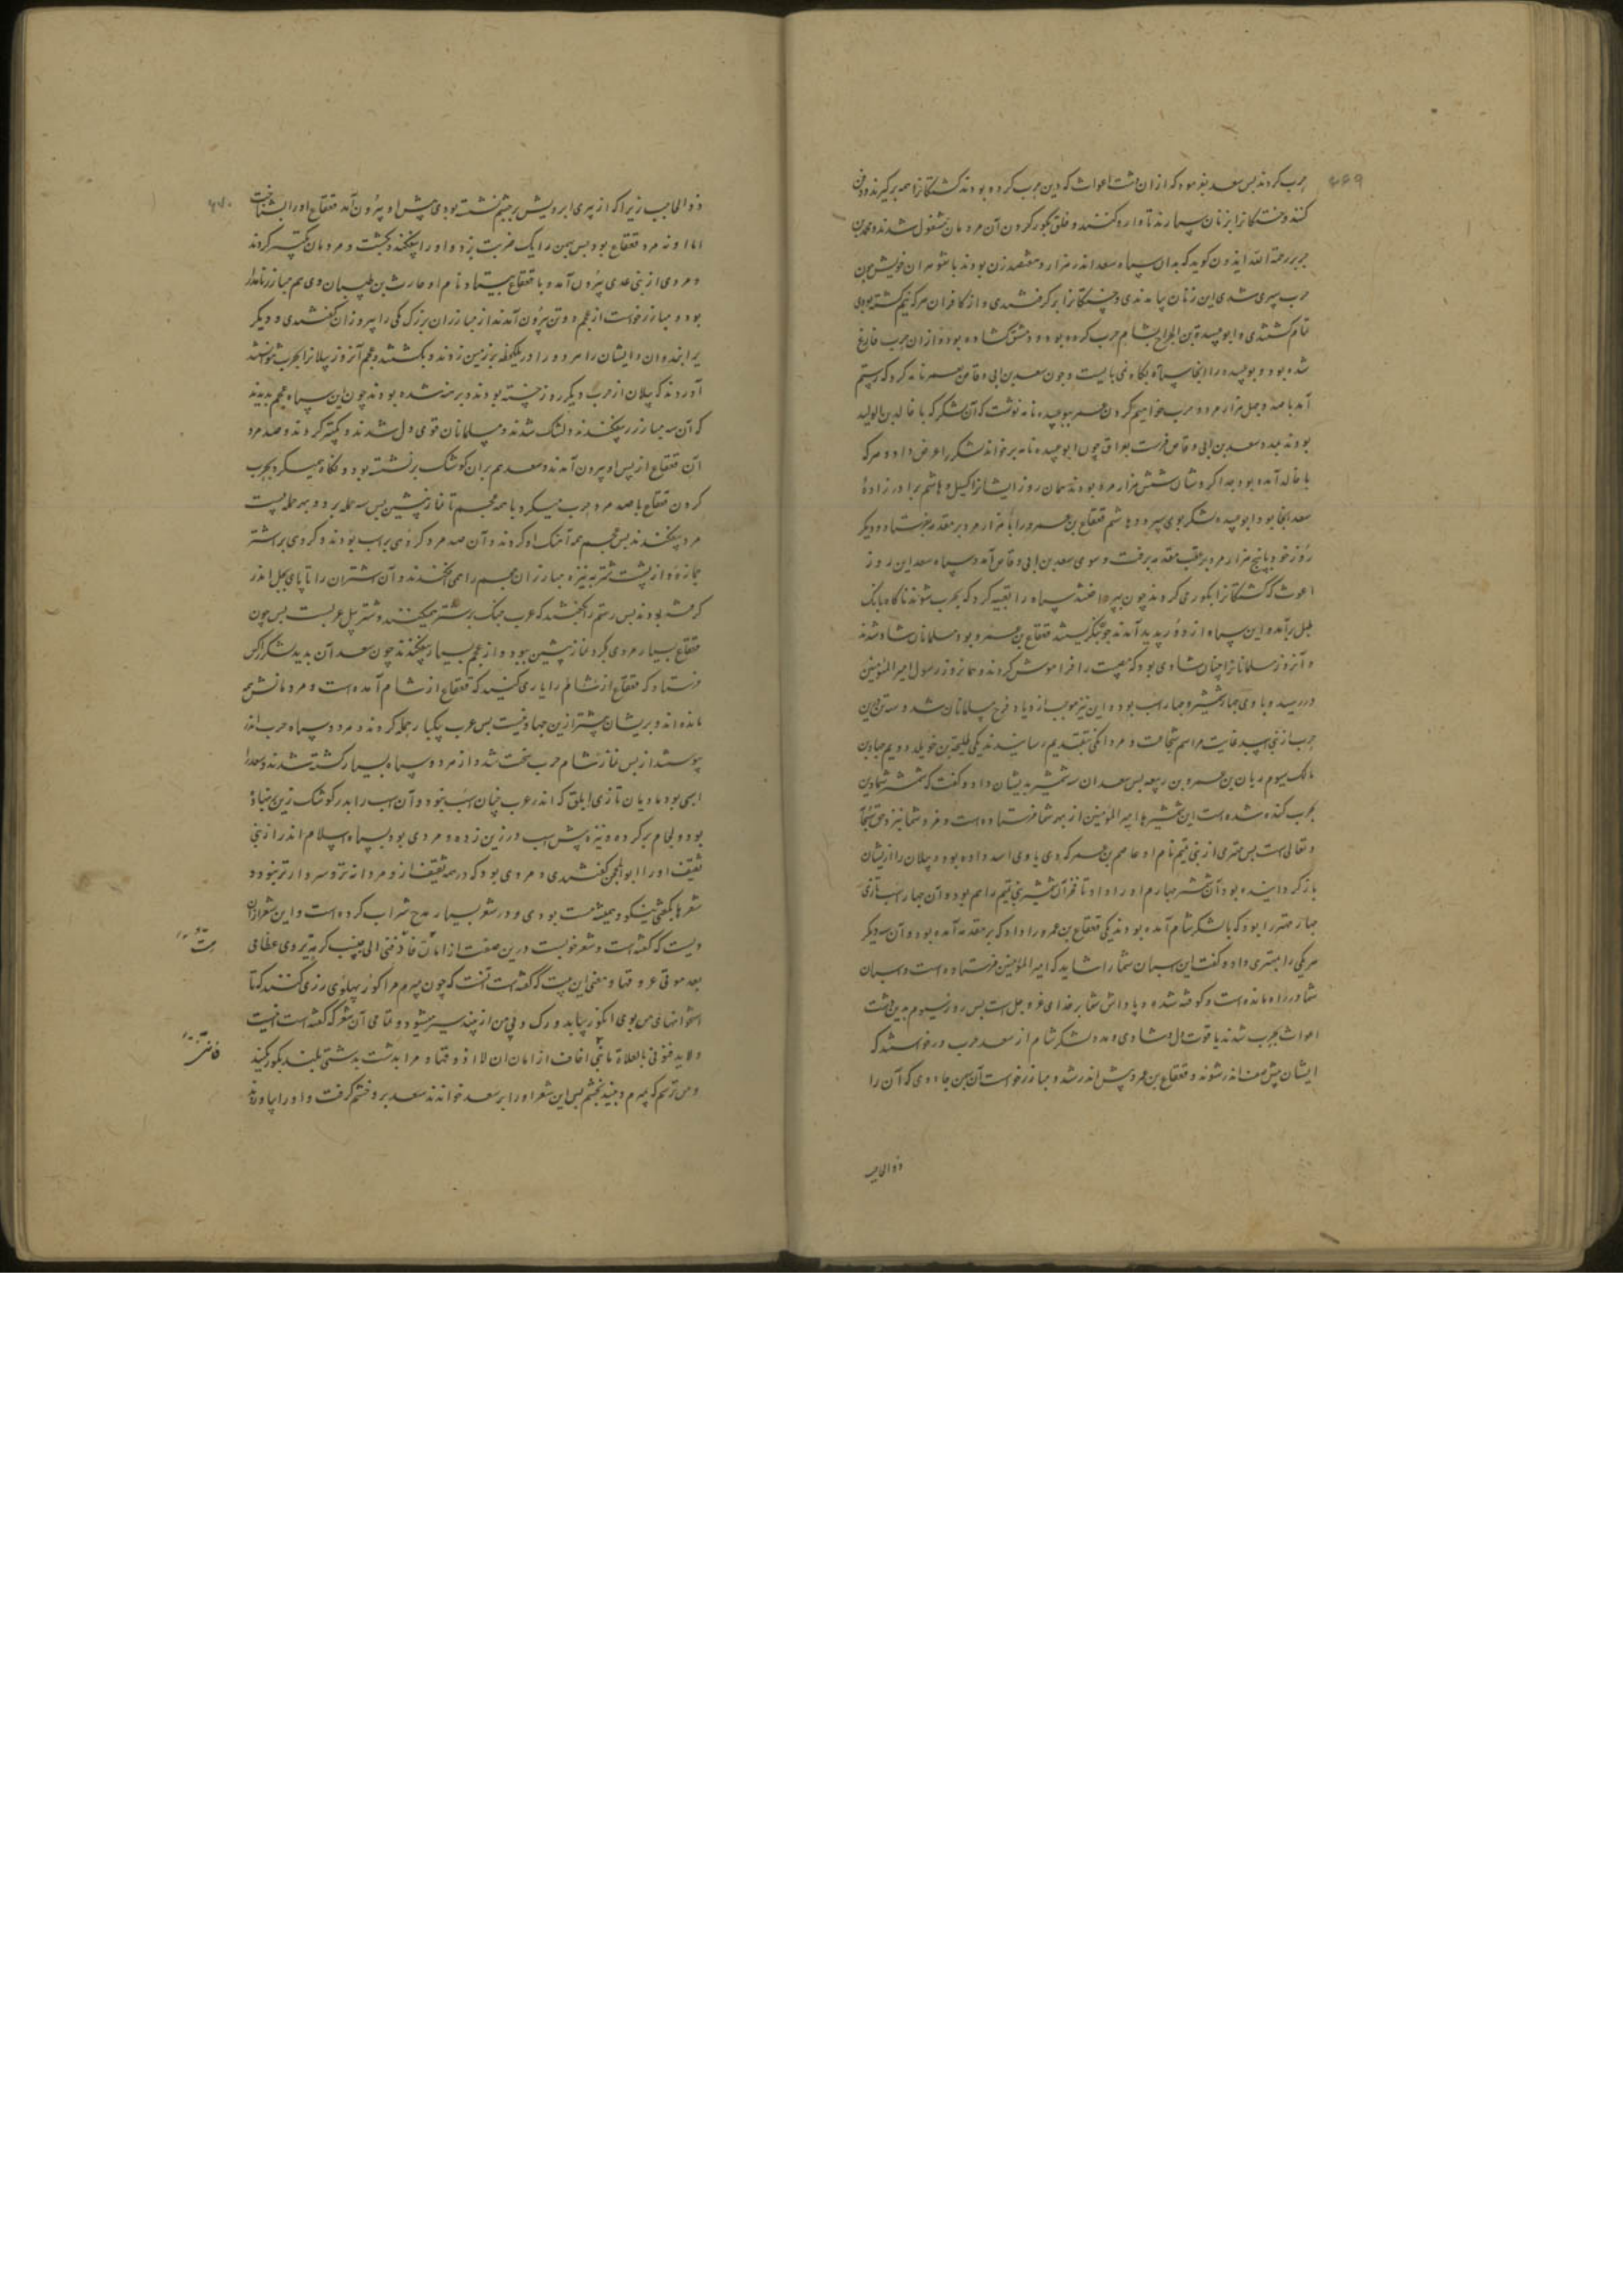 حرب کردند پس سعد بفرمود که از ان دشت اغواث که دین حرب کرده بودند کشتکانرا همه برکیرند و دفن
کنند و خستکانرا بزنان سپارند تا دارو کنند و خلق بکور کردن آن مردمان مشغول شدند و محمد بن
جریر رحمة الله ایذون کوید که بدان سپاه سعد اندر هزار و هفتصد زن بودند با شوهران خویش چون
حرب سپری شدی این زنان بیامدندی و خستکانرا برکرفتندی و از کافران هرکه نیم کشته بودی
تمام کشتندی و ابو عبیدة بن الجراح بشام حرب کرده بود و دمشق کشاده بود و از ان حرب فارغ
شده بود و بوعبیده را انجا سپاه بکار نمی بایست و چون سعد بن ابی وقاص بعمر نامه کرد که رستم
آمد با صد و چهل هزار مرد و حرب خواهیم کردن عمر ببوعبیده نامه نوشت که آن لشکر که با خالد بن الولید
بودند بمدد سعد بن ابی وقاص فرست بعراق چون ابو عبیده نامه برخواند لشکر را عرض داد و هرکه
با خالد آمده بود جدا کرد شان شش هزار مرد بودند همان روز ایشانرا کسیل و هاشم برادر زادهٔ
سعد انجا بود ابو عبیده لشکر بوی سپرد و هاشم قعقاع بن عمرو را با هزار مرد بر مقدمه بفرستاد و دیکر
روز خود با پنج هزار مرد بر عقب مقدمه برفت و سوی سعد بن ابی وقاص آمد و سپاه سعد این روز
اغوث که کشتکانرا بکور می کردند چون بپرداختند سپاه را تعبیه کرد که بحرب شوند ناکاه بانک
طبل برآمد و این سپاه از دور پدید آمدند چون بنکریستند قعقاع بن عمرو بود مسلمانان شاد شدند
و آنروز مسلمانانرا چنان شادی بود که مصیبت را فراموش کردند و همانروز رسول امیر المؤمنین
در رسید و با وی چهار شمشیر و چهار اسب بود و این نیز موجب ازدیاد فرح مسلمانان شد و سه تن درین
حرب از بنی اسد غایت مراسم شجاعت و مردانکی بتقدیم رسانیدند یکی طلیحة بن خویلد دویم حماد بن
مالک سیوم ربان بن عمرو بن ربیعه پس سعد ان سه شمشیر بدیشان داد و کفت که شمشیر شما درین
حرب کند شده است این شمشیرها امیر المؤمنین از بهر شما فرستاده است و مزد شما نیز نزد حق سبحانه
و تعالی است پس مهتری از بنی تمیم نام او عاصم بن عمر که وی یاوی اسد داده بود و پیلان را از یشان
باز کردانیده بود آن شمشیر چهارم او را داد تا فخر آن شمشیر بنی تمیم را هم بود و آن چهار اسب تازی
چهار مهتر را بود که با لشکر شام آمده بودند یکی قعقاع بن عمرو را داد که بر مقدمه آمده بود و آن سه دیکر
هر یکی را مهتری داد و کفت این اسبان شما را شاید که امیر المؤمنین فرستاده است و اسبان
شما در راه مانده است و کوفته شده و پاداش شما بر خدای عز و جل است پس روز سیوم بدین دشت
اغواث بحرب شدند با قوت دل و شادی و مدد لشکر شام از سعد حرب درخواستند که
ایشان پیش صف اندر شوند و قعقاع بن عمرو پیش اندر شد و مبارز خواست آن بهمن جادوی که آن را
ذو الحاجب
ذو الحاجب زیرا که از پیری ابرویش بر چشم نشسته بودی پیش او بیرون آمد قعقاع او را بشناخت
اما او نه مرد قعقاع بود پس بهمن را یک ضربت بزد و او را بیفکند و بکشت و مردمان تکبیر کردند
و مردی از بنی عدی بیرون آمد و با قعقاع بیستاد نام او حارث بن ظبیان وی هم مبارز نامدار
بود و مبارز خواست از عجم دو تن بیرون آمدند از مبارزان بزرک یکی را پیروزان کفتندی و دیکر
را بندوان و ایشان را هر دو را در یکلحظه بر زمین زدند و بکشتند و عجم آنروز پیلانرا بحرب نتوانستند
آوردند که پیلان از حرب دیکر روز خسته بودند و برهنه شده بودند چون این سپاه عجم بدیدند
که آن سه مبارز را بیفکندند دلتنک شدند و مسلمانان قوی دل شدند و تکبیر کردند و صد مرد
آن قعقاع از پس او بیرون آمدند و سعد هم بران کوشک بر نشسته بود و نکاه همیکرد بحرب
کردن قعقاع با صد مرد حرب میکرد با همه عجم تا نماز پیشین پس سه حمله برد و بهر حمله بیست
مرد بیفکندند پس عجم همه آهنک او کردند و آن صد مرد کروهی بر اسب بودند و کروهی بر اشتر
جمازه و از پشت شتر به نیزه مبارزان عجم را همی افکندند و آن شتران را تا پای بجل اندر
کرفته بودند پس رستم را کفتند که عرب جنک بر شتر همیکنند و شتر پیل عربست پس چون
قعقاع بسیار مردی کرد نماز پیشین ببود و از عجم بسیار بیفکندند چون سعد آن بدید لشکر را کس
فرستاد که قعقاع از شام را یاری کنید که قعقاع از شام آمده است و مردمانش همه
مانده اند و بریشان بیشتر ازین جهاد نیست پس عرب بیکبار حمله کردند و هر دو سپاه حرب اندر
پیوستند از پس نماز شام حرب سخت شد و از هر دو سپاه بسیار کشته شدند و سعد را
اسبی بود مادیان تازی ابلق که اندر عرب چنان اسب نبود و آن اسب را بدر کوشک زین بر نهاده
بود و لجام بر کرده و نیزه پیش اسب در زمین زده و مردی بود بسپاه اسلام اندر از بنی
ثقیف او را ابو المحجن کفتندی و مردی بود که در همه ثقیف ازو مردانه تر و سردارتر نبود و
شعرها بکفتی نیکو و همیشه مست بودی و در شعر بسیار مدح شراب کرده است و این شعر از ان
ویست که کفته است و شعر خوبست درین صفت اذا مت فادفنی الی جنب کرمة تروی عظامی
بعد موتی عروقها و معنی این بیت که کفته است آنست که چون بمیرم مرا کور پهلوی رزی کنند که تا
استخوانهای من بوی انکور بیابد و رک و پی من از چند سیر میشود و تمامی آن شعر که کفته است اینست
ولا تدفنونی بالفلاة فاننی اخاف اذا مامات ان لا اذوقها و مرا بدشت پشتی بلند بکور مکنید
و من ترسم که بمیرم و چند نچشم پس این شعر او را بر سعد خواندند سعد برو خشم کرفت و او را بیاورد